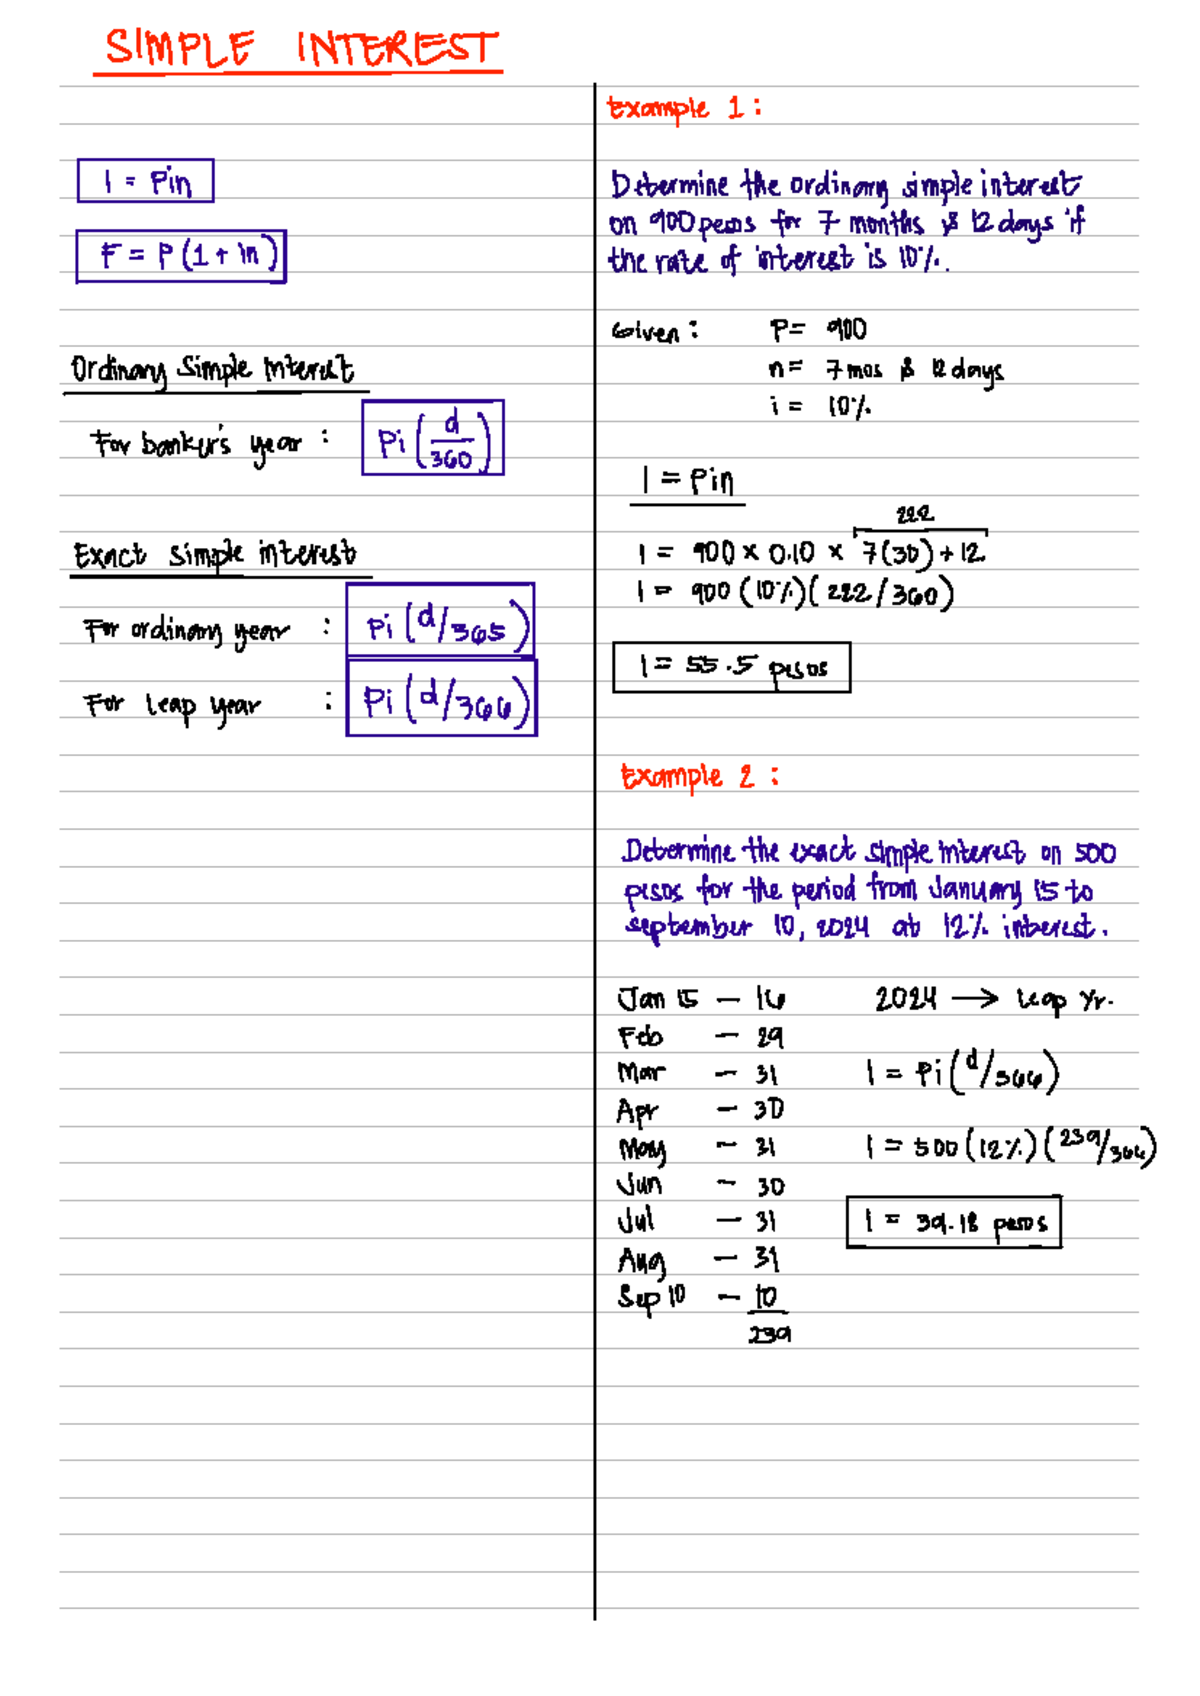 SIMPLE INTEREST
I = Pin
F = P(1 + in)
Ordinary Simple Interest
For banker's year : Pi(d/360)
Exact simple interest
For ordinary year : Pi(d/365)
For leap year : Pi(d/366)
Example 1:
Determine the ordinary simple interest
on 900 pesos for 7 months & 12 days if
the rate of interest is 10%.
Given: P= 900
n= 7 mos & 12 days
i = 10%
I = Pin
222
I = 900 x 0.10 x 7(30) + 12
I = 900 (10%)(222/360)
I = 55.5 pesos
Example 2 :
Determine the exact simple interest on 500
pesos for the period from January 15 to
september 10, 2024 at 12% interest.
Jan 15 — 16 2024 → Leap Yr.
Feb — 29
Mar — 31 I = Pi(d/366)
Apr — 30
May — 31 I = 500(12%)(239/366)
Jun — 30
Jul — 31 I = 39.18 pesos
Aug — 31
Sep 10 — 10
239